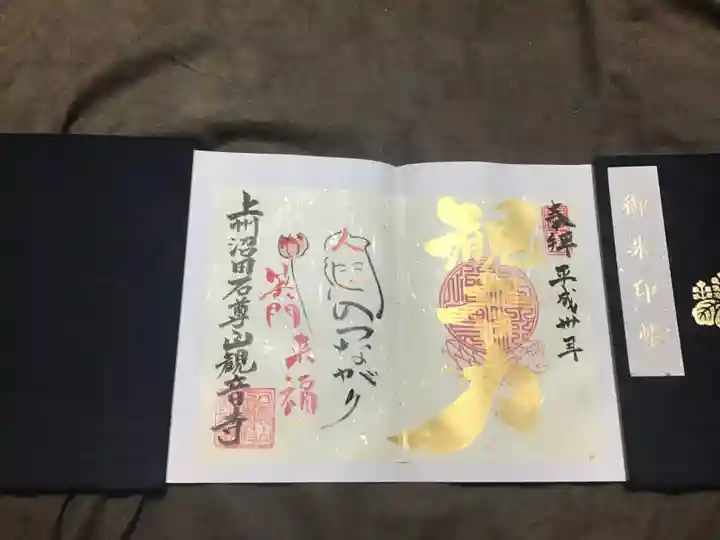 御朱印帳
奉拝
平成卅年
観音力
人
のつながり
笑門来福
上州沼田石尊山観音寺